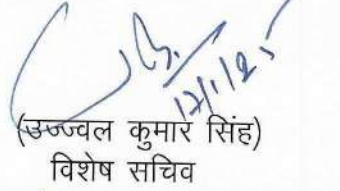 12/1/25
(उज्ज्वल कुमार सिंह)
विशेष सचिव